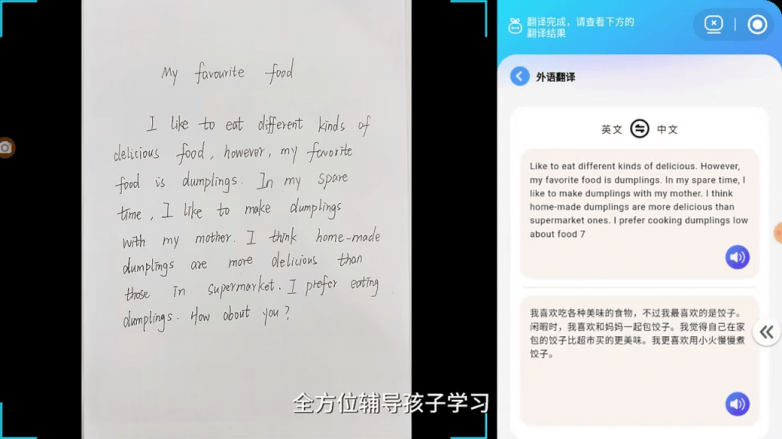 My favourite food
I like to eat different kinds of
delicious food, however, my favorite
food is dumplings. In my spare
time, I like to make dumplings
with my mother. I think home-made
dumplings are more delicious than
those in supermarket. I prefer eating
dumplings. How about you?
全方位辅导孩子学习
翻译完成，请查看下方的
翻译结果
外语翻译
英文 中文
Like to eat different kinds of delicious. However,
my favorite food is dumplings. In my spare time, I
like to make dumplings with my mother. I think
home-made dumplings are more delicious than
supermarket ones. I prefer cooking dumplings low
about food 7
我喜欢吃各种美味的食物，不过我最喜欢的是饺子。
闲暇时，我喜欢和妈妈一起包饺子。我觉得自己在家
包的饺子比超市买的更美味。我更喜欢用小火慢慢煮
饺子。